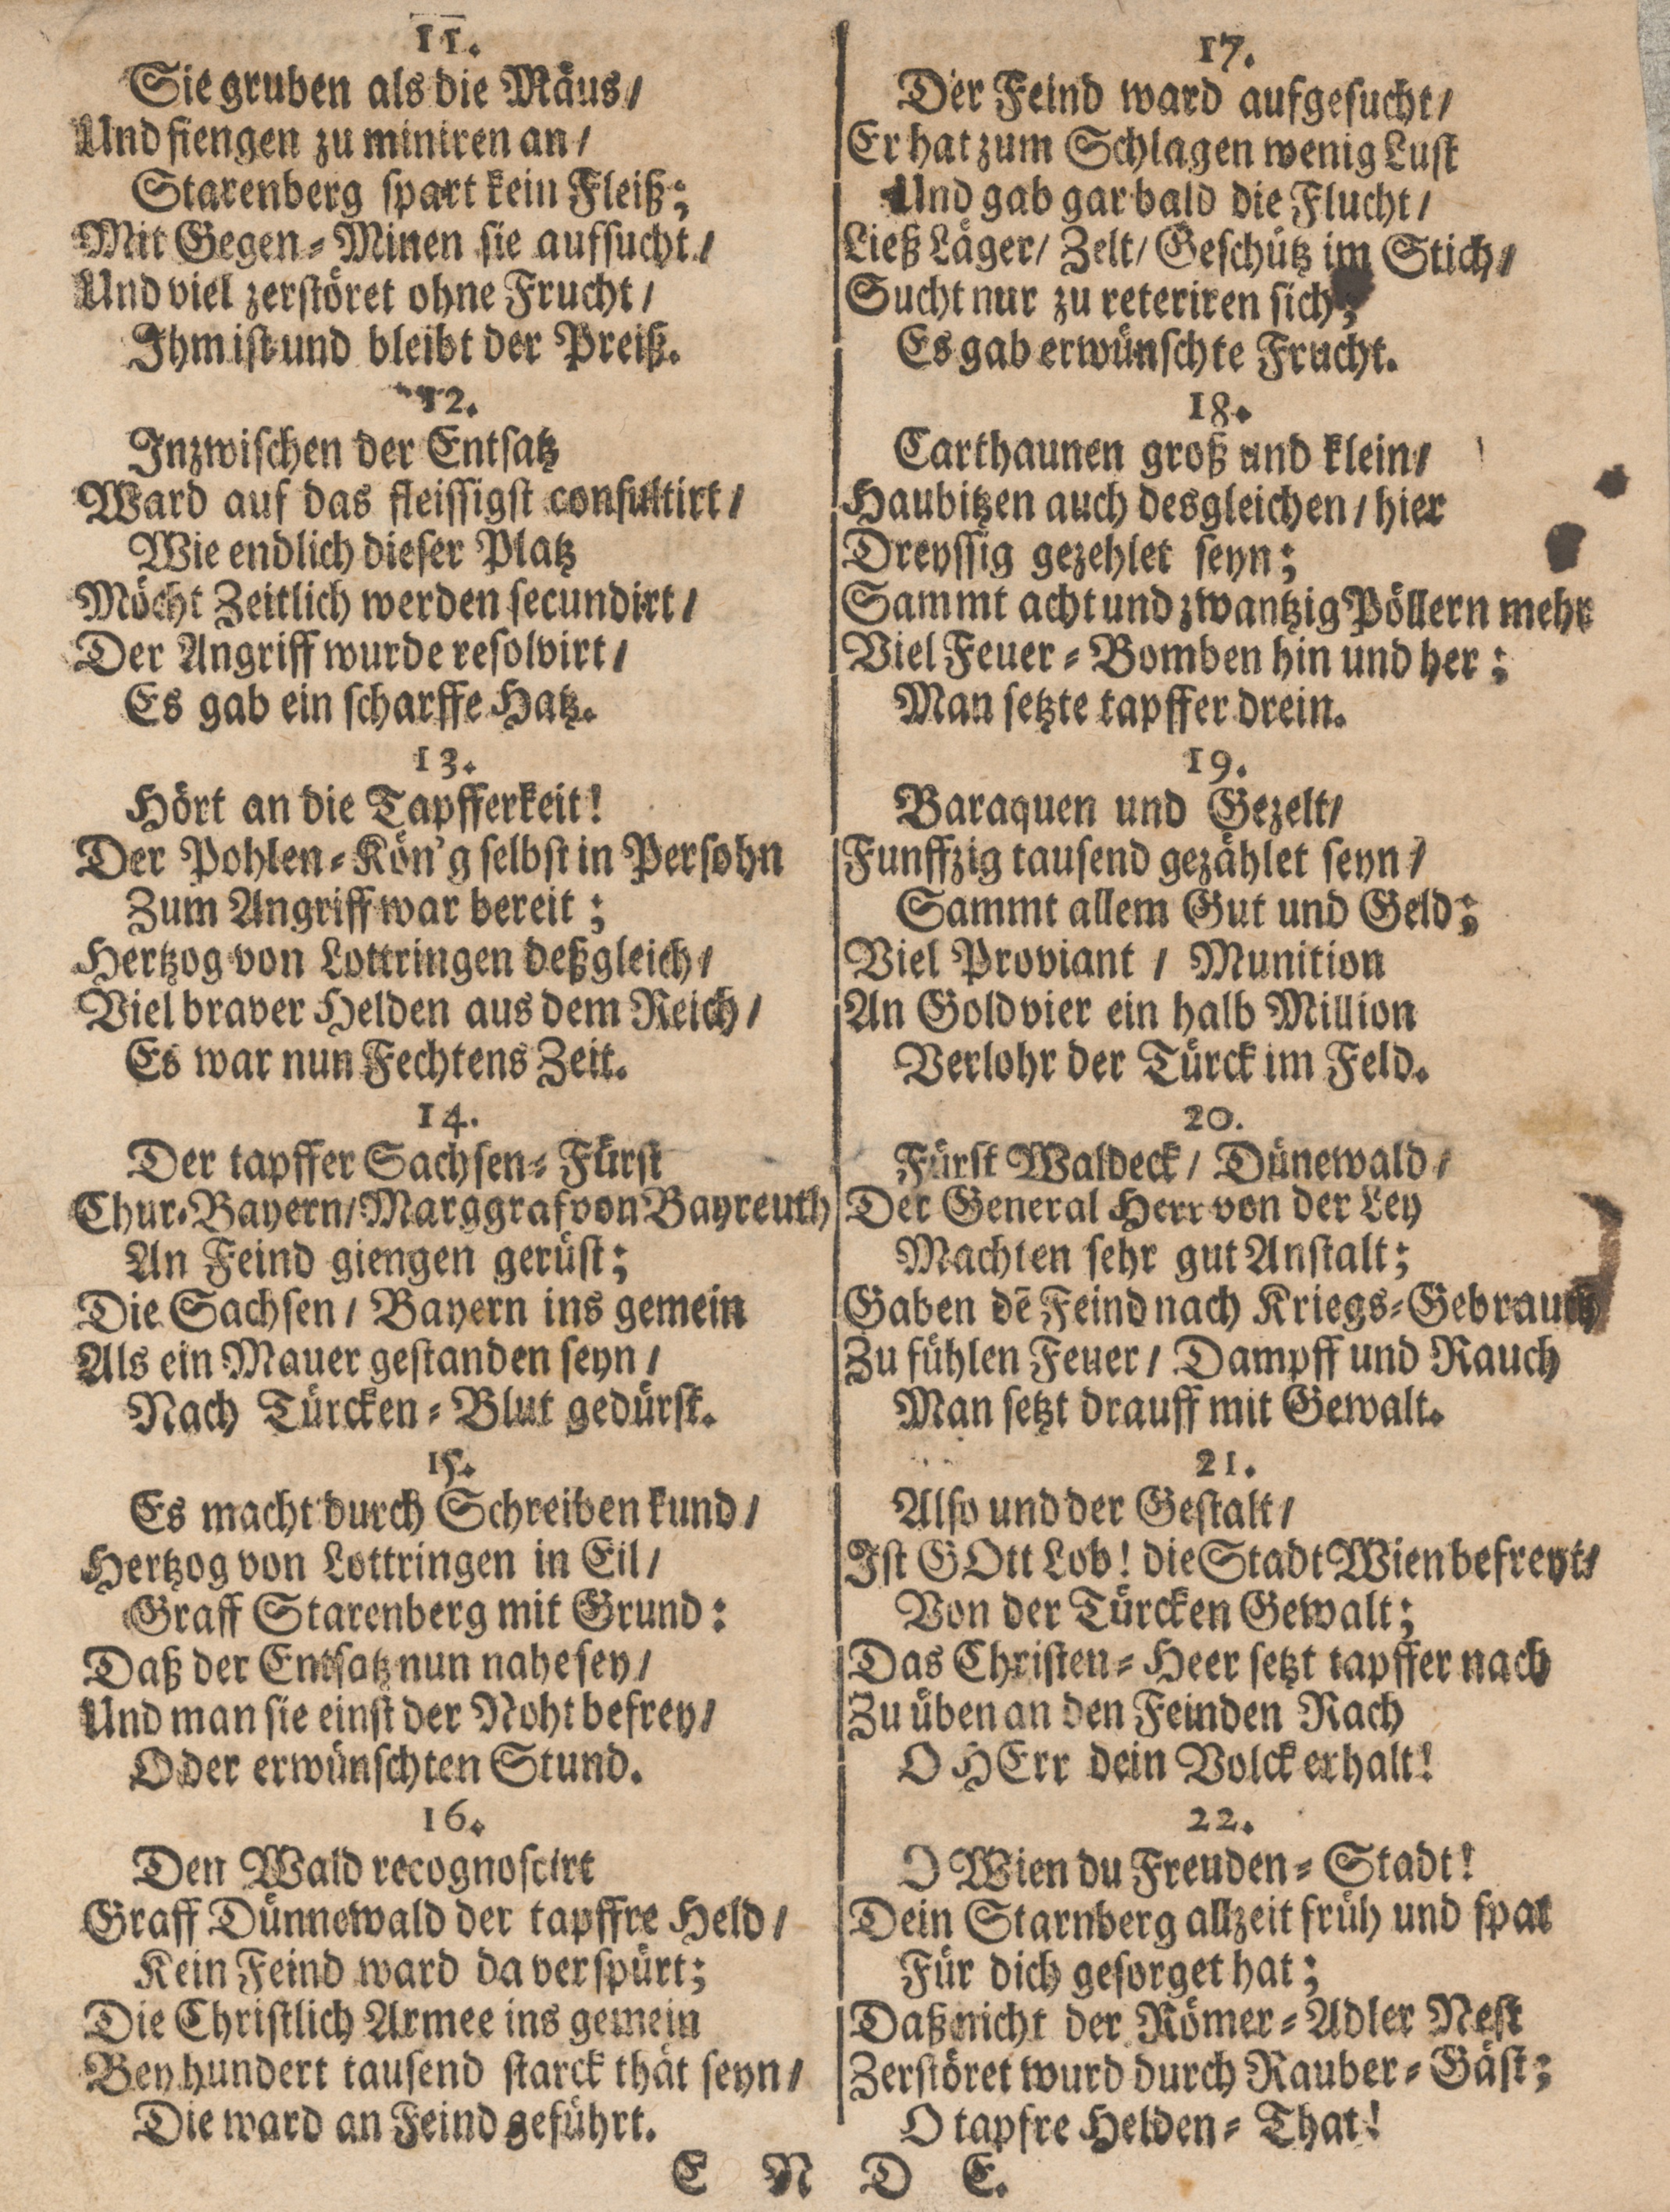 11.
Sie gruben als die Mäus/
Und fiengen zu miniren an/
Starenberg spart kein Fleiß;
Mit Gegen-Minen sie aufsucht/
Und viel zerstöret ohne Frucht/
Ihm ist und bleibt der Preiß.
12.
Inzwischen der Entsatz
Ward auf das fleissigst consultirt/
Wie endlich dieser Platz
Möcht Zeitlich werden secundirt/
Der Angriff wurde resolvirt/
Es gab ein scharffe Hatz.
13.
Hört an die Tapfferkeit!
Der Pohlen-Kön'g selbst in Persohn
Zum Angriff war bereit;
Hertzog von Lottringen deßgleich/
Viel braver Helden aus dem Reich/
Es war nun Fechtens Zeit.
14.
Der tapffer Sachsen-Fürst
Chur-Bayern/Marggraf von Bayreuth
An Feind giengen gerüst;
Die Sachsen/ Bayern ins gemein
Als ein Mauer gestanden seyn/
Nach Türcken-Blut gedürst.
15.
Es macht durch Schreiben kund/
Hertzog von Lottringen in Eil/
Graff Starenberg mit Grund:
Daß der Entsatz nun nahe sey/
Und man sie einst der Noht befrey/
O der erwünschten Stund.
16.
Den Wald recognoscirt
Graff Dünnewald der tapffre Held/
Kein Feind ward da verspürt;
Die Christlich Armee ins gemein
Bey hundert tausend starck thät seyn/
Die ward an Feind geführt.
17.
Der Feind ward aufgesucht/
Er hat zum Schlagen wenig Lust
Und gab gar bald die Flucht/
Ließ Läger/ Zelt/ Geschütz im Stich/
Sucht nur zu reteriren sich;
Es gab erwünschte Frucht.
18.
Carthaunen groß und klein/
Haubitzen auch desgleichen/ hier
Dreyssig gezehlet seyn;
Sammt acht und zwantzig Pöllern mehr
Viel Feuer-Bomben hin und her;
Man setzte tapffer drein.
19.
Baraquen und Gezelt/
Funffzig tausend gezählet seyn/
Sammt allem Gut und Geld;
Viel Proviant/ Munition
An Gold vier ein halb Million
Verlohr der Türck im Feld.
20.
Fürst Waldeck/ Dünewald/
Der General Herr von der Ley
Machten sehr gut Anstalt;
Gaben dē Feind nach Kriegs-Gebrauch
Zu fühlen Feuer/ Dampff und Rauch
Man setzt drauff mit Gewalt.
21.
Also und der Gestalt/
Ist GOtt Lob! die Stadt Wien befreyt/
Von der Türcken Gewalt;
Das Christen-Heer setzt tapffer nach
Zu üben an den Feinden Rach
O HErr dein Volck erhalt!
22.
O Wien du Freuden-Stadt!
Dein Starnberg allzeit früh und spat
Für dich gesorget hat;
Daß nicht der Römer-Adler Nest
Zerstöret wurd durch Rauber-Gäst;
O tapfre Helden-That!
E N D E.